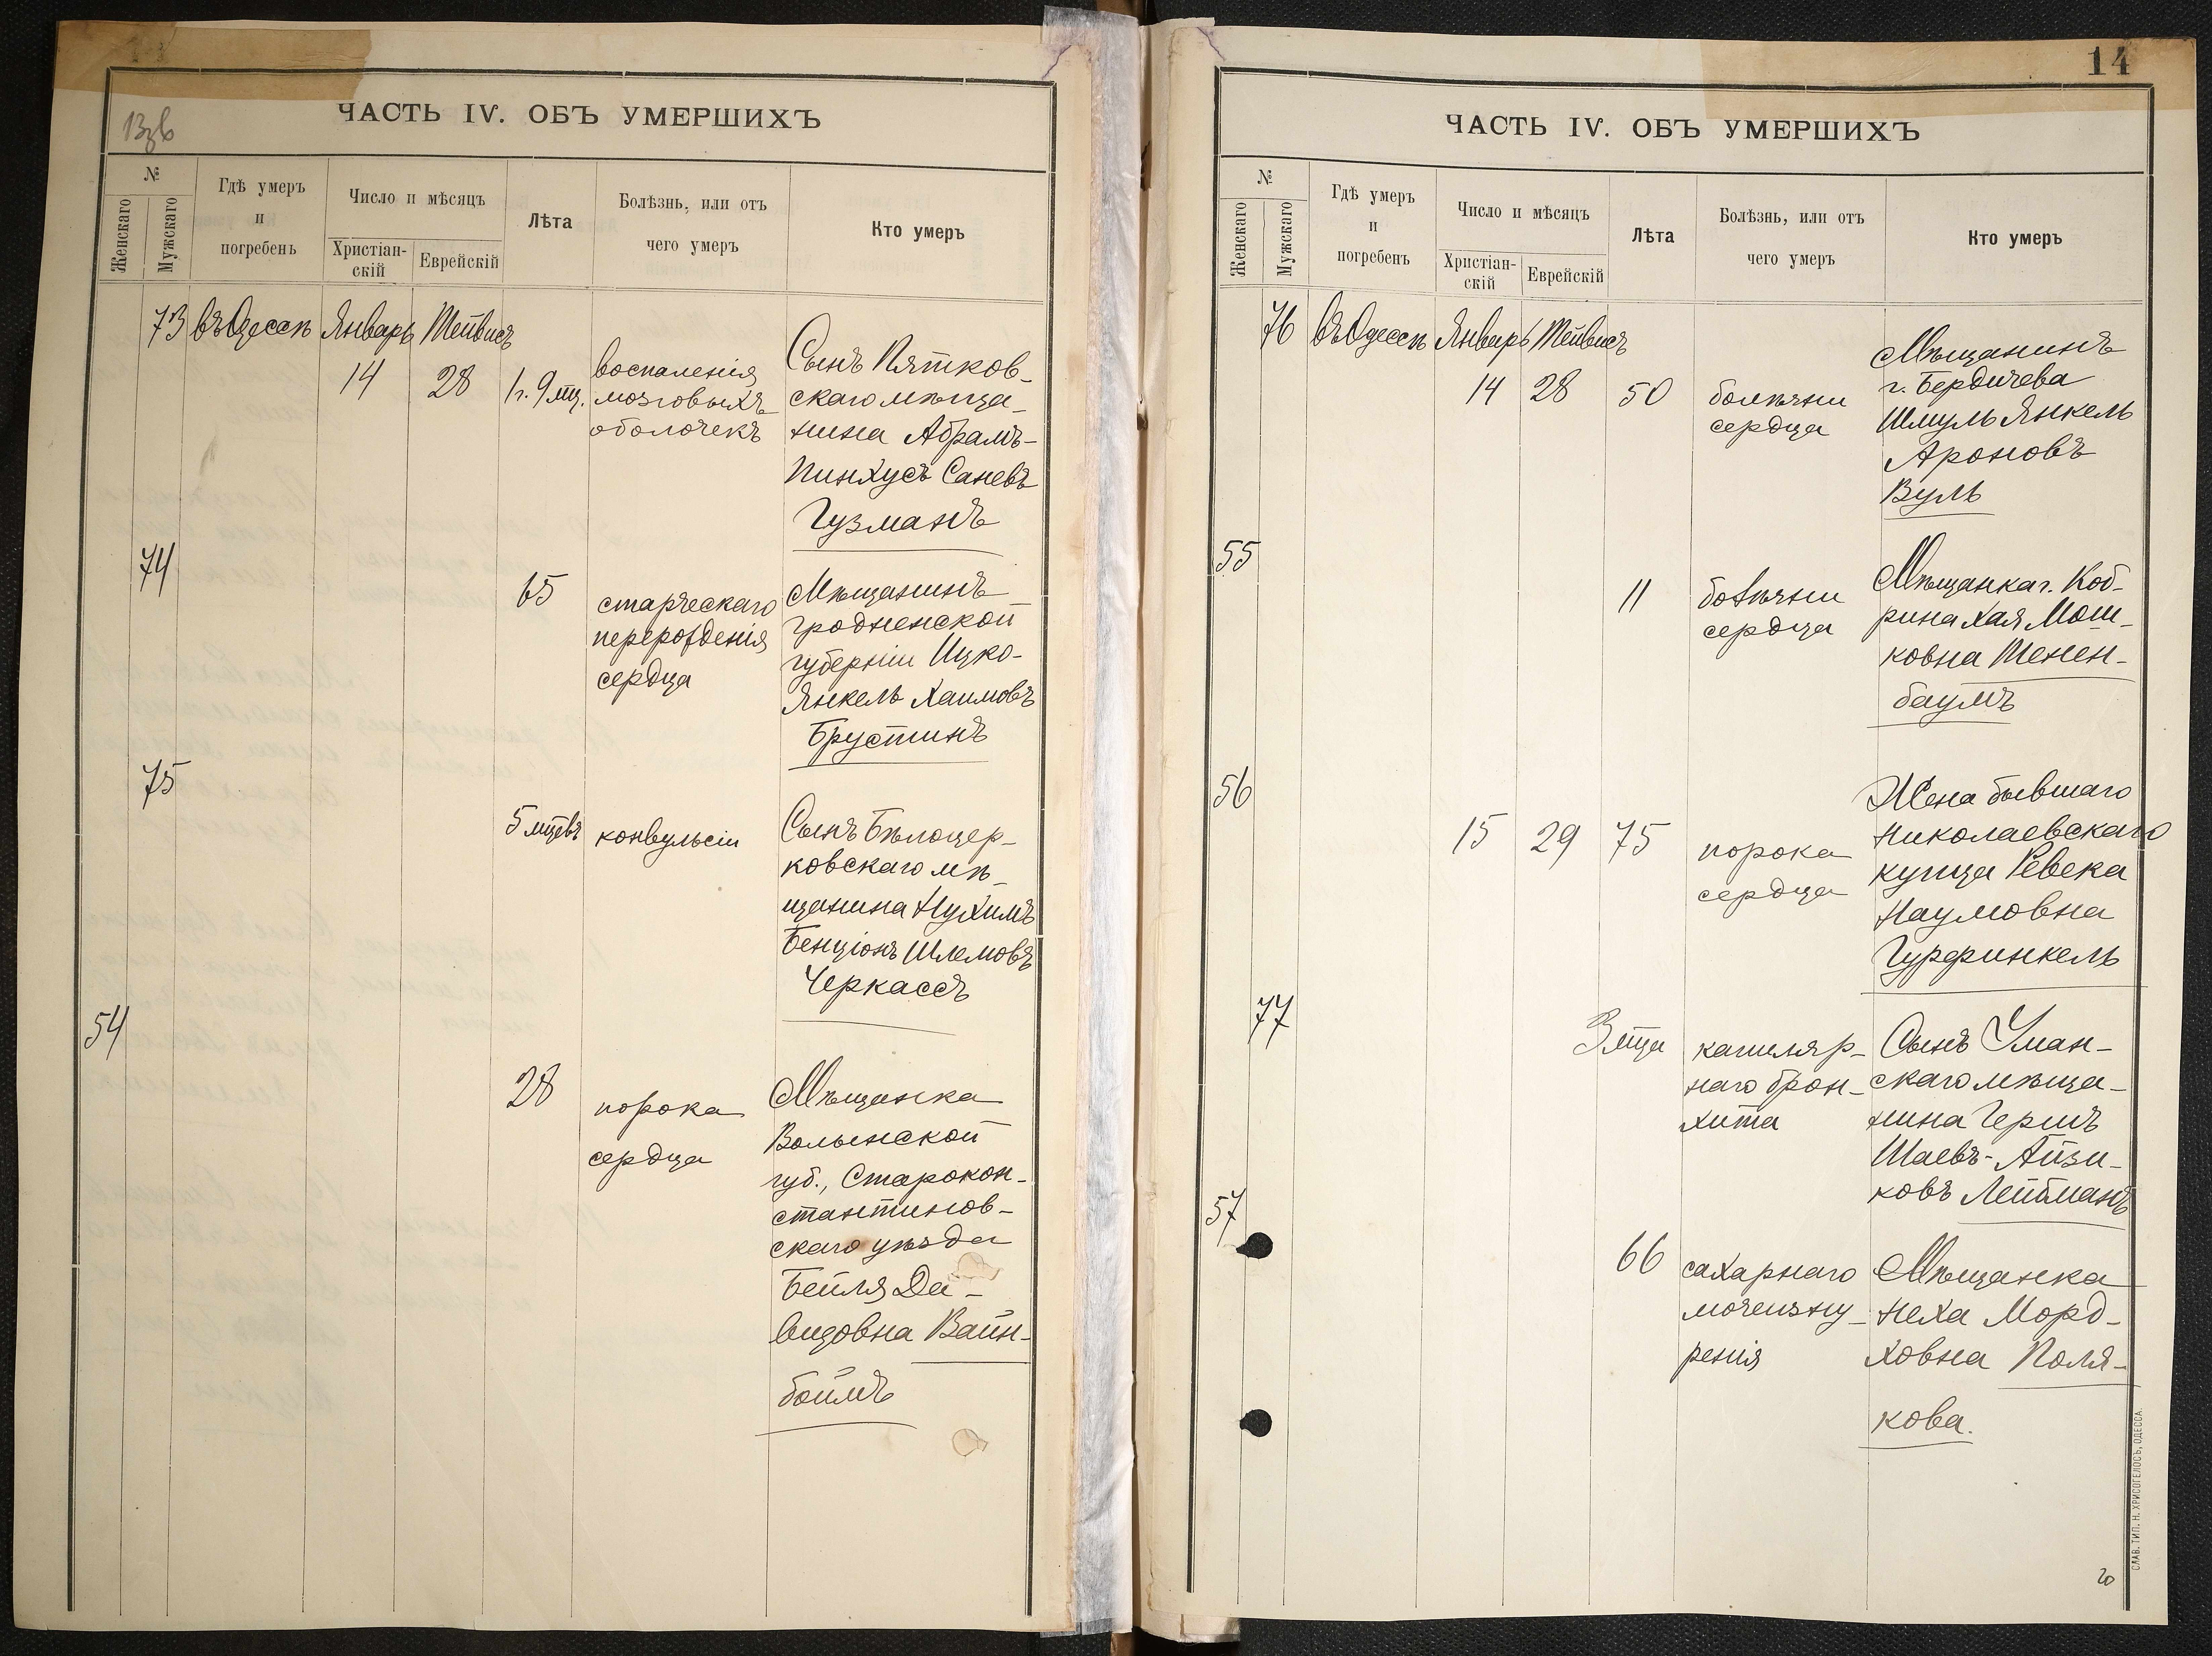 13зв
ЧАСТЬ IV. ОБЪ УМЕРШИХЪ
№
Женскаго
Мужскаго
Гдѣ умеръ
и
погребенъ
Число и мѣсяцъ
Христіан-
скій
Еврейскій
Лѣта
Болѣзнь, или отъ
чего умеръ
Кто умеръ
73 въ Одессѣ Январь Тейвисъ
14 28 1 г. 9 мц.
воспаленія
мозговыхъ
оболочекъ
Сынъ Пятков-
скаго мѣща-
нина Абрамъ-
Пинхусъ Саневъ
Гузманъ
74
65
старческаго
перерожденія
сердца
Мѣщанинъ
Гродненской
губерніи Ицко-
Янкель Хаимовъ
Брустинъ
75
5 мцевъ
конвульсіи
Сынъ Бѣлоцер-
ковскаго мѣ-
щанина Нухимъ
Бенціонъ Шлемовъ
Черкассъ
54
28
порока
сердца
Мѣщанка
Волынской
губ., Старокон-
стантинов-
скаго уѣзда
Бейля Да-
видовна Вайн-
боймъ
14
ЧАСТЬ IV. ОБЪ УМЕРШИХЪ
№
Женскаго
Мужскаго
Гдѣ умеръ
и
погребенъ
Число и мѣсяцъ
Христіан-
скій
Еврейскій
Лѣта
Болѣзнь, или отъ
чего умеръ
Кто умеръ
76 въ Одессѣ Январь Тейвисъ
14 28 50
болѣзни
сердца
Мѣщанинъ
г. Бердичева
Шмуль Янкель
Ароновъ
Вуль
55
11
болѣзни
сердца
Мѣщанка г. Коб-
рина Хая Мош-
ковна Тенен-
баумъ
56
15 29 75
порока
сердца
Жена бывшаго
Николаевскаго
купца Ревека
Наумовна
Гурфинкель
77
3 мца
капиляр-
наго брон-
хита
Сынъ Уман-
скаго мѣща-
нина Гершъ
Шаевъ-Айзи-
ковъ Лейбманъ
57
66
сахарнаго
мочеизну-
ренія
Мѣщанка
Неха Морд-
ховна Поля-
кова.
СЛАВ. ТИП. Н. ХРИСОГЕЛОСЪ, ОДЕССА.
20